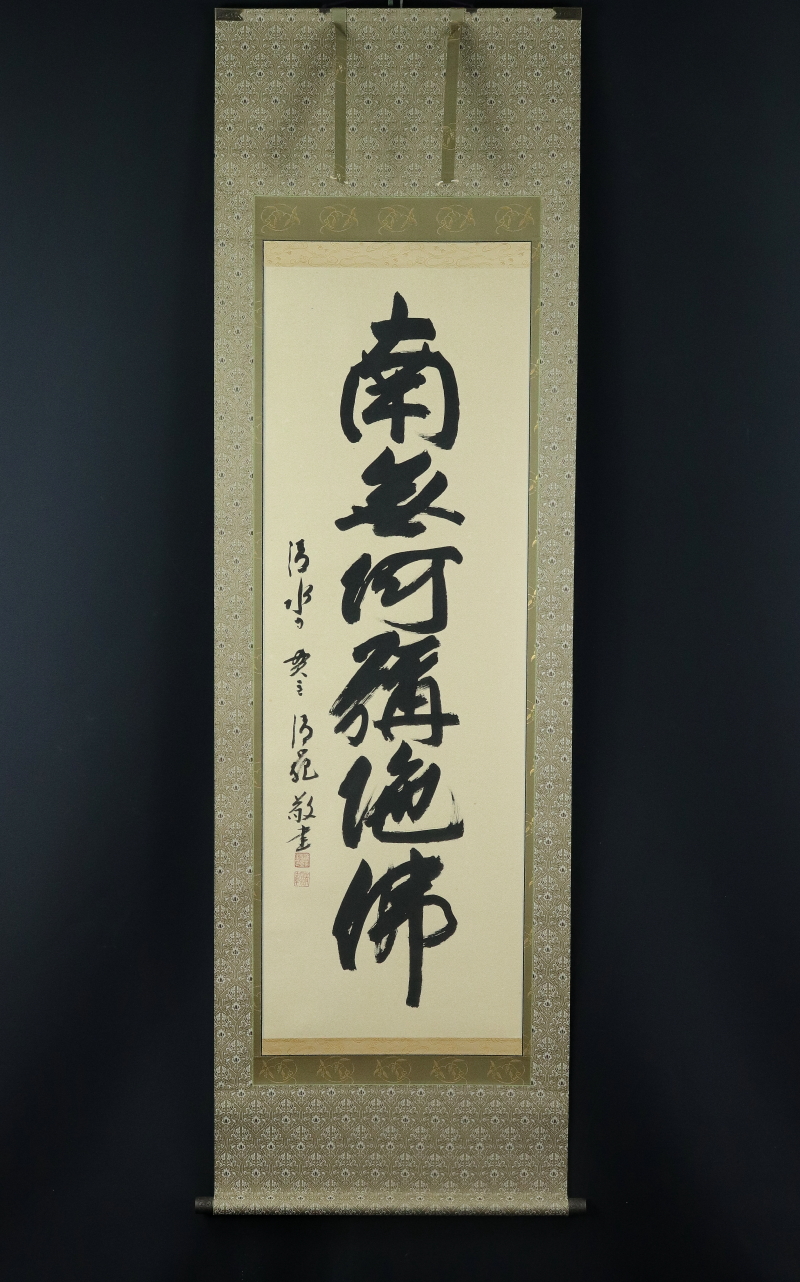 南無阿彌陀佛
清水寺 貫主 清範 敬書